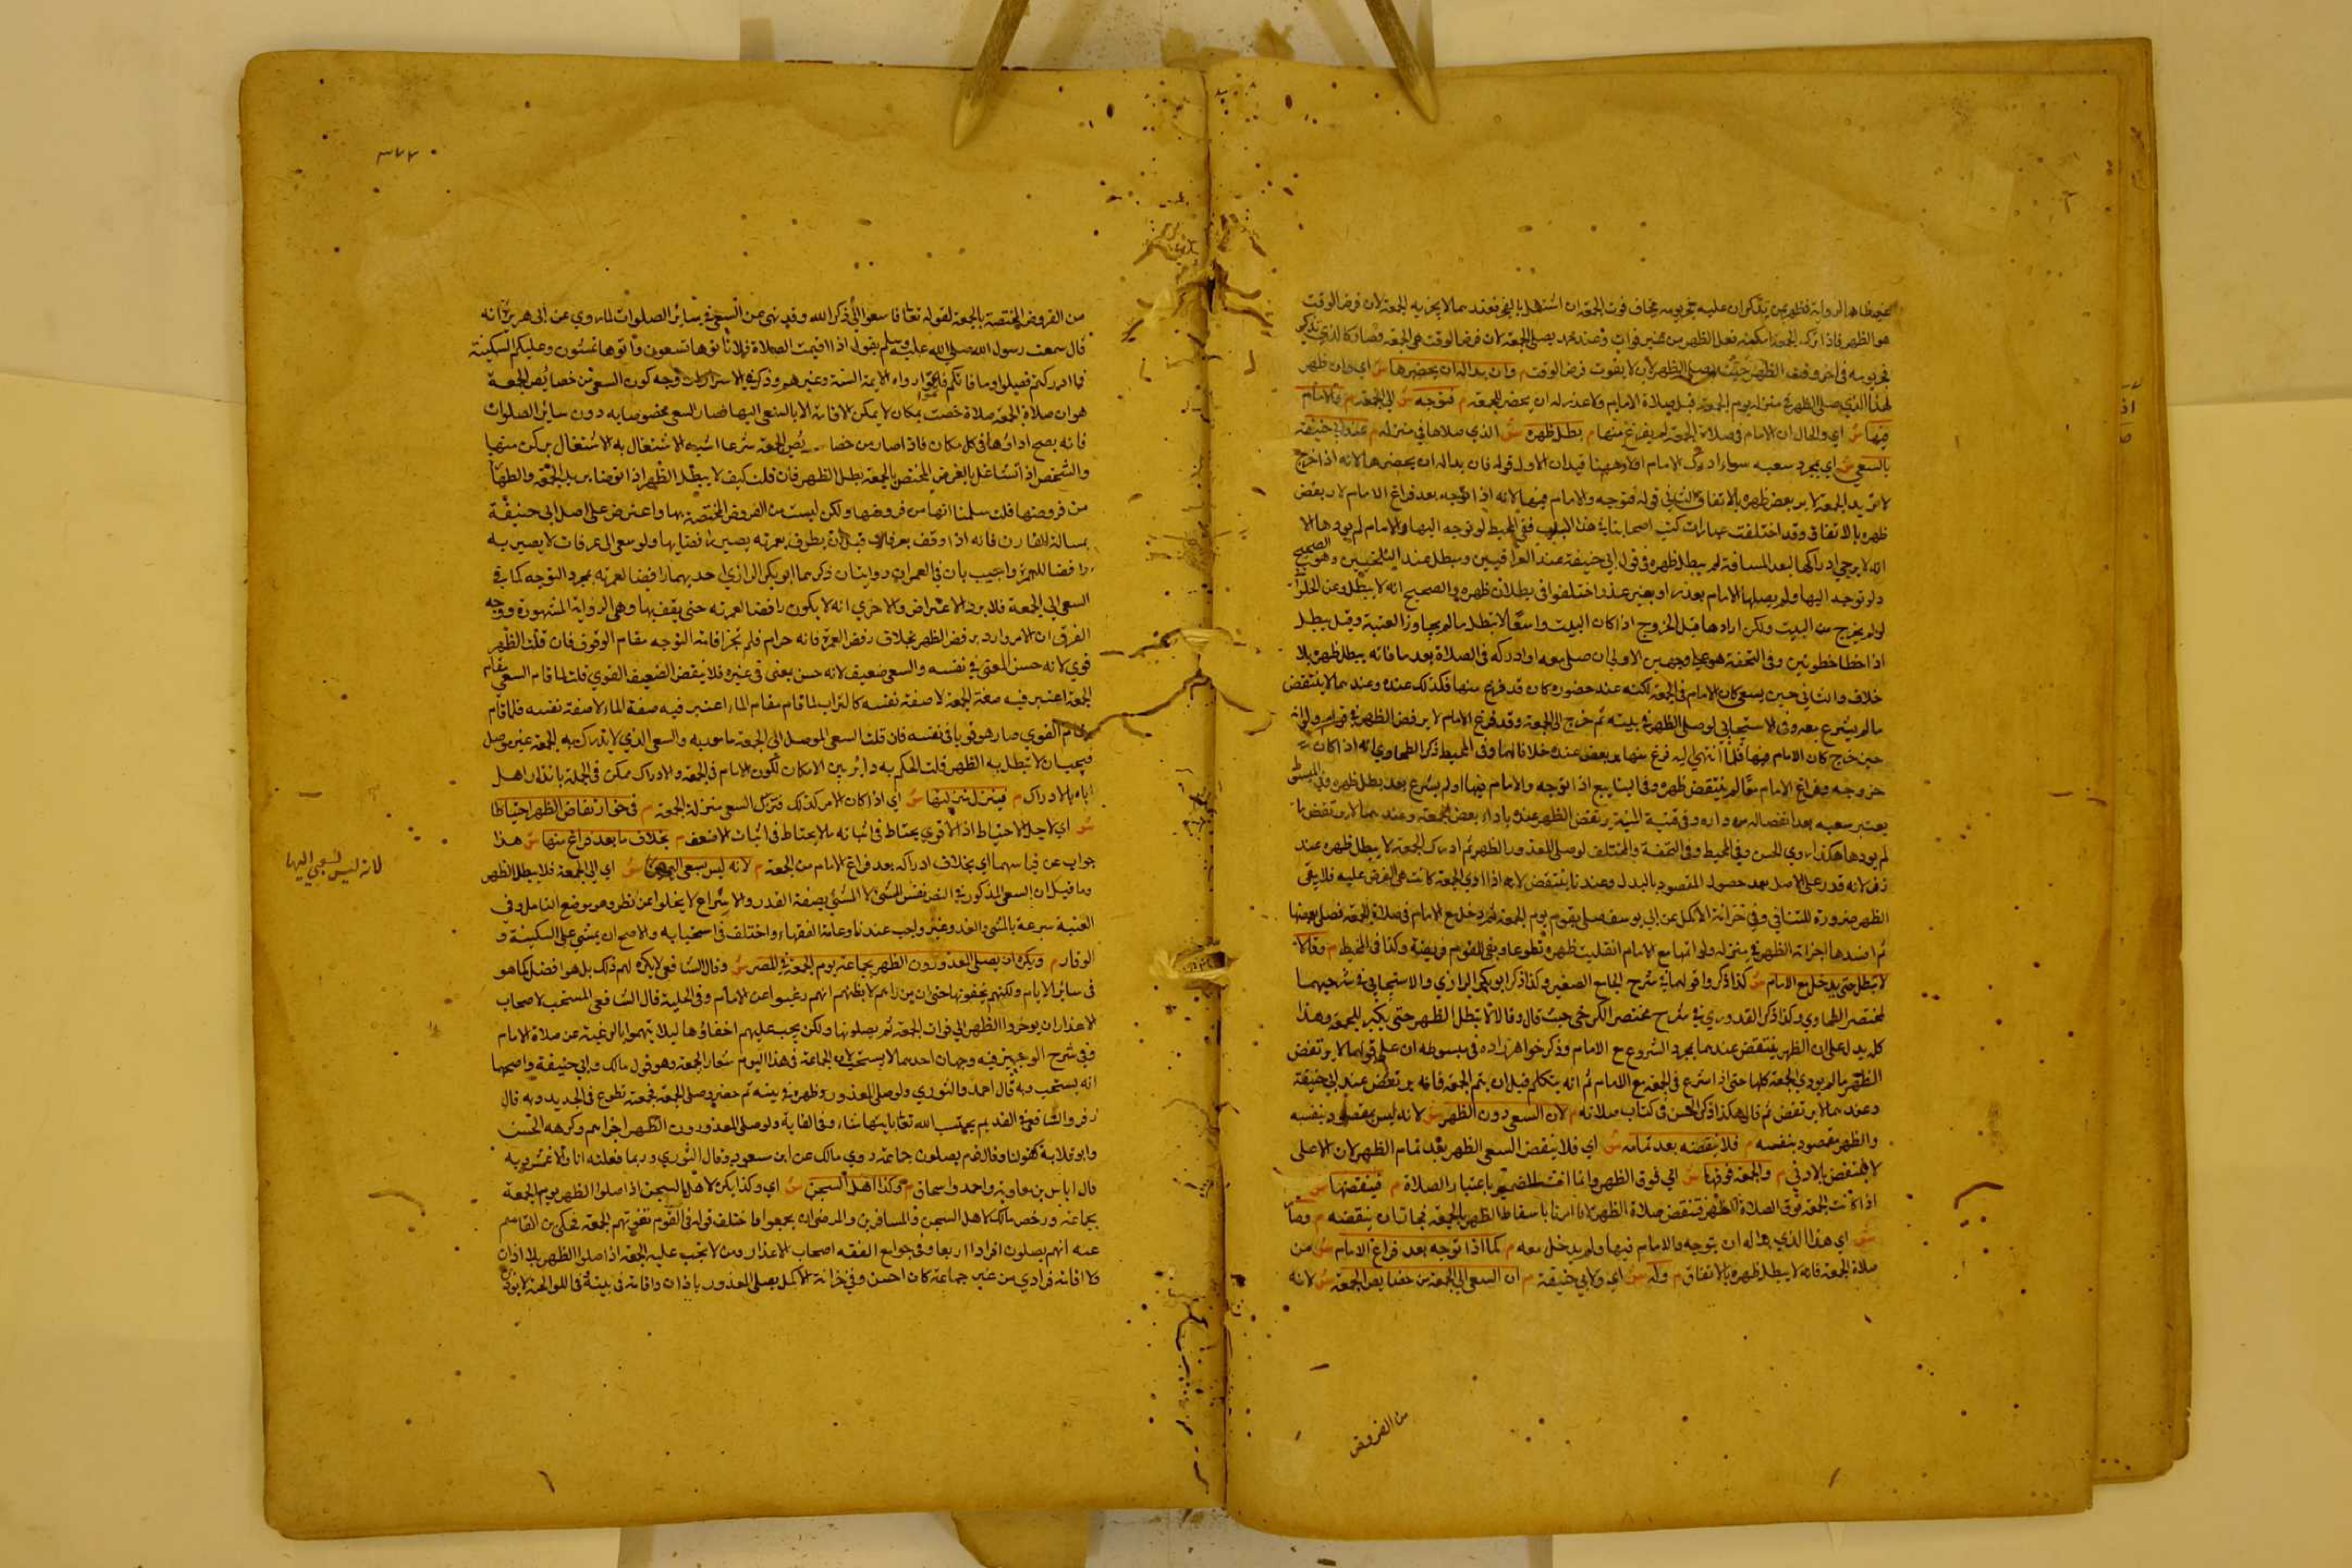 هو الظهر فاذا ترك الجمعة امكنه فعل الظهر من غير فوات وعند محمد يصلي الجمعة لان فرض الوقت هي الجمعة فصار كالذي تذكر
فجر يومه في اخر وقت الظهر حيث يصلي الظهر لان لا يفوت فرض الوقت م وان بدا له ان يحضرها س اي وان ظهر
لهذا الذي صلى الظهر في منزله يوم الجمعة قبل صلاة الامام ولا عذر له ان يحضر الجمعة م فتوجه س الى الجمعة م والامام
فيها س اي والحال ان الامام في صلاة الجمعة لم يفرغ منها م بطل ظهره س الذي صلاها في منزله م عند ابي حنيفة
بالسعي س اي بمجرد سعيه سواء ادرك الامام اولا وههنا قيدان الاول قوله فان بدا له ان يحضرها لانه اذا خرج
لا يريد الجمعة لا يرتفض ظهره بالاتفاق والثاني قوله فتوجه والامام فيها لانه اذا توجه بعد فراغ الامام لا يرتفض
ظهره بالاتفاق وقد اختلفت عبارات كتب اصحابنا في هذا الباب ففي المحيط لو توجه اليها والامام لم يودها الا
انه لا يرجي ادراكها لبعد المسافة لم يبطل ظهره في قول ابي حنيفة عند العراقيين ويبطل عند البلخيين وهو الصحيح
ولو توجه اليها ولم يصلها الامام بعذر او بغير عذر اختلفوا في بطلان ظهره والصحيح انه لا يبطل وعن الحلوا
لو لم يخرج من البيت ولكن ارادها قبل الخروج اذا كان البيت واسعا لا تبطل ما لم يجاوز العتبة وقيل يبطل
اذا خطا خطوتين وفي التحفة هو على وجهين الاول ان صلى معه او ادركه في الصلاة بعد ما فاته يبطل ظهره بلا
خلاف والثاني حين يسعى كان الامام في الجمعة لكنه عند حضوره كان قد فرغ منها فكذلك عنده وعندهما لا ينتقض
ما لم يشرع معه وفي الاستيجابي لو صلى الظهر في بيته ثم خرج الى الجمعة وقد فرغ الامام لا يرفض الظهر في قولهم ولو انه
حين خرج كان الامام فيها فلما انتهى اليه فرغ منها يرتفض عنده خلافا لهما وفي المحيط ذكر الطحاوي انه اذا كان
خروجه وفراغ الامام معا لم ينتقض ظهره وفي الينابيع اذا توجه والامام فيها ولم يشرع بعد بطل ظهره وفي المبسوط
يعتبر سعيه بعد انفصاله من داره وفي قنية المنية يرتفض الظهر عنده باداء بعض الجمعة وعندهما لا يرتفض ما
لم يودها هكذا روي الحسن وفي المحيط وفي التحفة والمختلف لو صلى المعذور الظهر ثم ادرك الجمعة لا يبطل ظهره عند
زفر لانه قدر على الاصل بعد حصول المقصود بالبدل وعندنا ينتقض لانه اذا ادي الجمعة كانت هي الفرض عليه فلا يبقى
الظهر ضرورة للتنافي وفي خزانة الاكمل عن ابي يوسف صلى بقوم يوم الجمعة ثم دخل مع الامام في صلاة الجمعة فصلى بعضها
ثم افسدها اجزاته الظهر في منزله ولو اتمها مع الامام انقلبت ظهره تطوعا وبقي للقوم فريضة وكذا في المحيط م وقالا
لا تبطل حتى يدخل مع الامام س كذا ذكروا قولهما في شرح الجامع الصغير وكذا ذكر ابو بكر الرازي والاستيجابي في شرحيهما
لمختصر الطحاوي وكذا ذكر القدوري في شرح مختصر الكرخي حيث قال وقالا لا تبطل الظهر حتى يكبر للجمعة وهذا
كله يدل على ان الظهر ينتقض عندهما بمجرد الشروع مع الامام وذكر خواهر زاده في مبسوطه ان على قولهما لا يرتفض
الظهر ما لم يودي الجمعة كلها حتى اذا شرع في الجمعة مع الامام ثم انه يتكلم قبل ان يتم الجمعة فانه يرتفض عند ابي حنيفة
وعندهما لا يرتفض ثم قال هكذا ذكر الحسن في كتاب صلاته م لان السعي دون الظهر س لانه ليس بمقصود بنفسه
والظهر مقصود بنفسه م فلا ينقضه بعد تمامه س اي فلا ينقض السعي الظهر بعد تمام الظهر لان الاعلى
لا ينتقض بالادنى م والجمعة فوقها س اي فوق الظهر وانما انث الضمير باعتبار الصلاة م فينقضها س
اذا كانت الجمعة فوق الصلاة الظهر فتنقض صلاة الظهر لانا امرنا باسقاط الظهر بالجمعة فجاز ان ينقضه م وصار
س اي هذا الذي بدا له ان يتوجه والامام فيها ولم يدخل معه م كما اذا توجه بعد فراغ الامام س من
صلاة الجمعة فانه لا يبطل ظهره بالاتفاق م وله س اي ولابي حنيفة م ان السعي الى الجمعة من خصايص الجمعة س لانه
من الفروض
من الفروض المختصة بالجمعة لقوله تعالى فاسعوا الى ذكر الله وقد نهى عن السعي في سائر الصلوات لما روي عن ابي هريرة انه
قال سمعت رسول الله صلى الله عليه وسلم يقول اذا اقيمت الصلاة فلا تاتوها تسعون واتوها تمشون وعليكم السكينة
فما ادركتم فصلوا وما فاتكم فاتموا رواه الايمة الستة وغيرهم وذكر في الاسرار وجه كون السعي من خصايص الجمعة
هو ان صلاة الجمعة صلاة خصت بمكان لا يمكن الاقامة الا بالسعي اليها فصار السعي مخصوصا به دون سائر الصلوات
فانه يصح اداوها في كل مكان فاذا صار من خصايص الجمعة شرعا اشبه الاشتغال به الاشتغال بركن منها
والشخص اذا تشاغل بالفرض المختص بالجمعة بطل الظهر فان قلت كيف لا يبطل الظهر اذا توضا يريد الجمعة والطهارة
من فروضها قلت سلمنا انها من فروضها ولكن ليست من الفروض المختصة بها واعترض على اصل ابي حنيفة
بمسالة القارن فانه اذا وقف بعرفات قبل ان يطوف بعمرته يصير رافضا بها ولو سعى الى عرفات لا يصير به
رافضا للعمرة واجيب بان في العمرات روايتان ذكرهما ابو بكر الرازي احديهما رافضا لعمرته بمجرد التوجه كما في
السعي الى الجمعة فلا يرد الاعتراض والاخري انه لا يكون رافضا لعمرته حتى يقف بها وهي الرواية المشهورة ووجه
الفرق ان الامر وارد برفض الظهر بخلاف رفض العمرة فانه حرام فلم تجز اقامة التوجه مقام الوقوف فان قلت الظهر
قوي لانه حسن لمعنى في نفسه والسعي ضعيف لانه حسن بمعنى في غيره فلا ينقض الضعيف القوي قلت لما قام السعي مقام
الجمعة اعتبر فيه صفة الجمعة لا صفة نفسه كالتراب لما قام مقام الماء اعتبر فيه صفة الماء لا صفة نفسه فلما قام
مقام القوي صار هو قويا في نفسه فان قلت السعي الموصل الى الجمعة مامور به والسعي الذي لا يدرك به الجمعة غير موصل
فيجب ان لا تبطل به الظهر قلت الحكم به داير بين الامكان لكون الامام في الجمعة والادراك ممكن في الجملة باقدار الله
اياه بالادراك م فينزل منزلتها س اي اذا كان الامر كذلك فتنزل السعي منزلة الجمعة م في حق ارتفاض الظهر احتياطا
س اي لاجل الاحتياط اذ الاقوي يحتاط في اثباته ما لا يحتاط في اثبات الاضعف م بخلاف ما بعد فراغ منها س هذا
جواب عن قياسهما اي بخلاف ادراكه بعد فراغ الامام من الجمعة م لانه ليس بسعي اليها س اي الى الجمعة فلا يبطل الظهر
لانه ليس بسعي اليها
وما قيل ان السعي المذكور في النص نفس المشي لا المشي بصفة القدر والاسراع لا يخلوا عن نظر وهو موضع التامل وفي
القنية سرعة بالمشي والعدو غير واجب عندنا وعامة الفقهاء واختلف في استحبابه والاصح ان يمشي على السكينة و
الوقار م ويكره ان يصلي المعذورون الظهر بجماعة يوم الجمعة في المصر س وقال الشافعي لا يكره لهم ذلك بل هو افضل كما هو
في سائر الايام ولكنهم يخفونها حتى ان من راهم لا يظنهم انهم رغبوا عن الامام وفي الحلية قال الشافعي المستحب لاصحاب
الاعذار ان يوخروا الظهر الى فوات الجمعة ثم يصلونها ولكن يجب عليهم اخفاؤها ليلا يتهموا بالرغبة عن صلاة الامام
وفي شرح الوجيز فيه وجهان احدهما لا يستحب لان الجماعة في هذا اليوم شعار الجمعة وهو قول مالك وابي حنيفة واصحهما
انه يستحب وبه قال احمد والثوري ولو صلى المعذور ظهره في بيته ثم حضر وصلى الجمعة فجمعته تطوع في الجديد وبه قال
زفر والشافعي في القديم يحتسب الله تعالى بايتهما شاء وفي الغاية ولو صلى المعذورون الظهر اجزاهم وكرهه الحسن
وابو قلابة كقولنا وقال قوم يصلون جماعة روي مالك عن ابن مسعود وقال الثوري وربما فعلته انا والاعمش وبه
قال اياس بن معاوية واحمد واسحاق م وكذا اهل السجن س اي وكذا يكره لاهل السجن اذا صلوا الظهر يوم الجمعة
بجماعة ورخص مالك لاهل السجن والمسافرين والمرضى ان يجمعوا واختلف قوله في القوم تفوتهم الجمعة فحكي بن القاسم
عنه انهم يصلون افرادا اربعا وفي جوامع الفقه اصحاب الاعذار ومن لا تجب عليه الجمعة اذا صلوا الظهر بلا اذان
ولا اقامة فرادي من غير جماعة كان احسن وفي خزانة الاكمل يصلي المعذور باذان واقامة في بيته